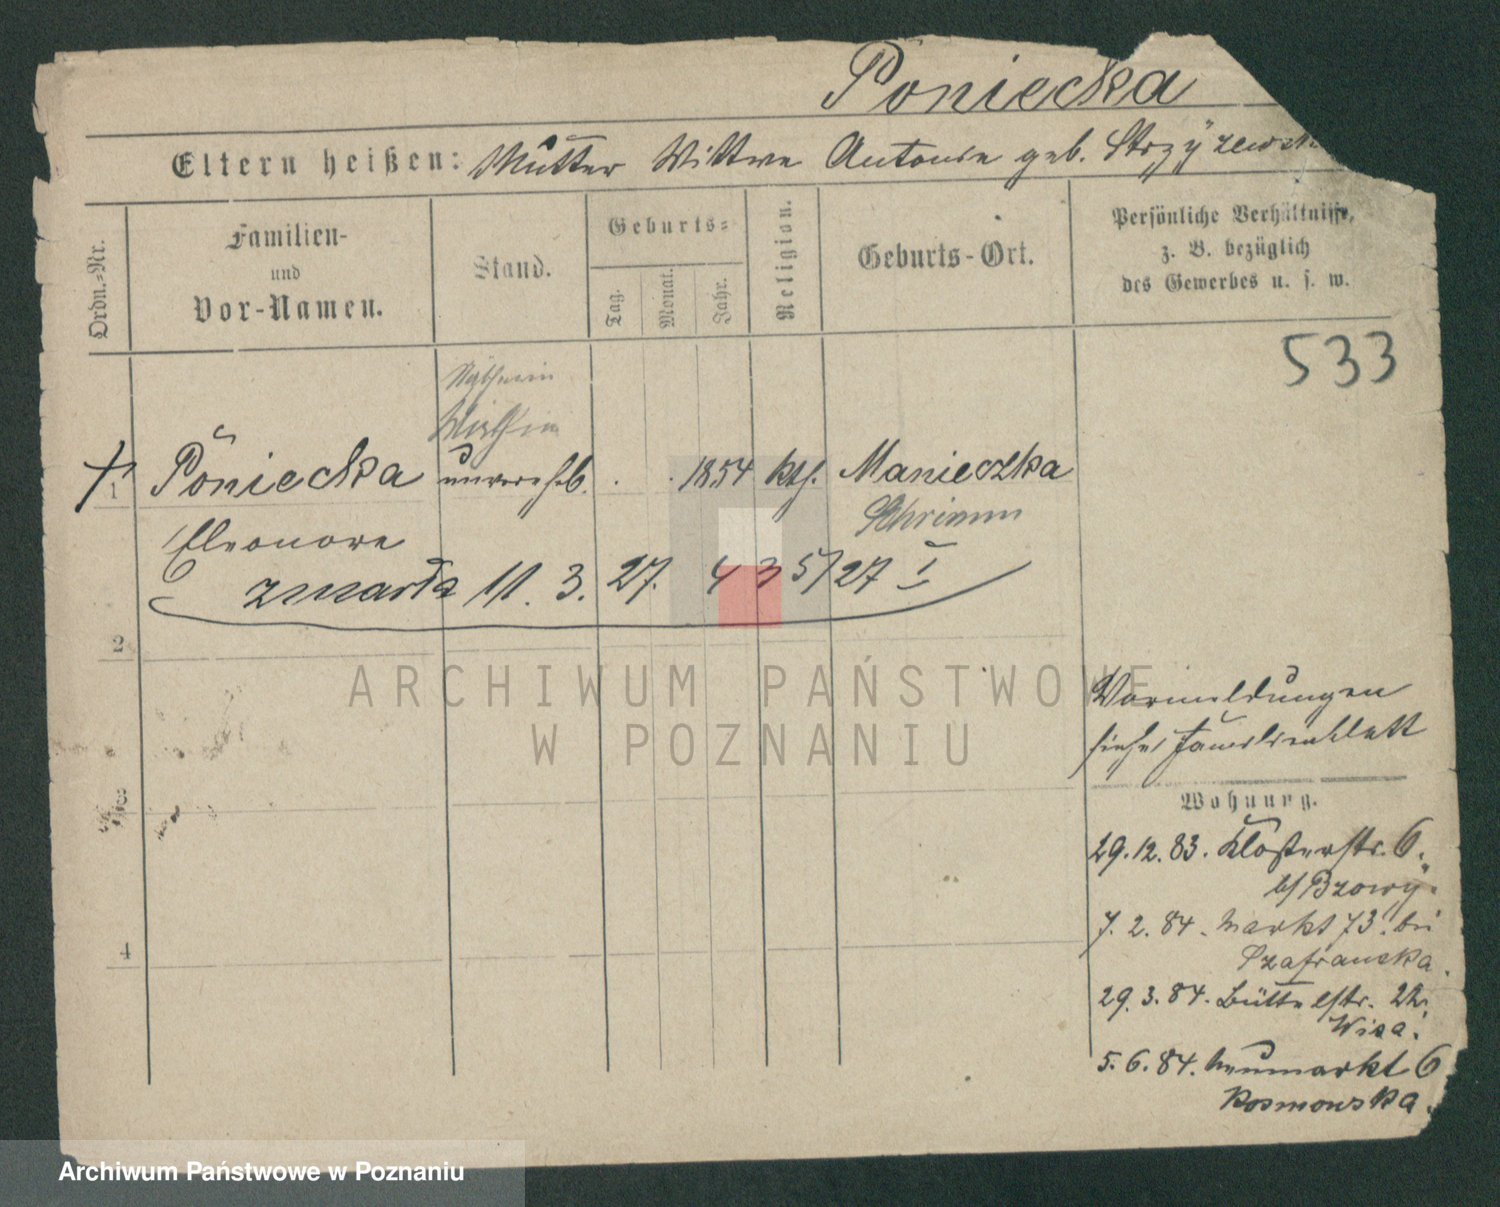 Poniecka
Eltern heißen: Mutter Wittwe Antonie geb. Strzyżewsk
Ordn.=Nr.
Familien-
und
Vor-Namen.
Stand.
Geburts=
Tag.
Monat.
Jahr.
Religion.
Geburts-Ort.
Persönliche Verhältnisse,
z. B. bezüglich
des Gewerbes u. s. w.
533
Nätherin
Wirthin
1 Poniecka unverehel. 1854 kth. Manieczka
Schrimm
Eleonore
zmarła 11. 3. 27. 435/27 I
2
3
4
Vormeldungen
siehe Familienblatt
Wohnung.
29.12.83. Klosterstr. 6.
b/ Bzowy.
7. 2. 84. Markt 73. bei
Szafranska.
29.3.84. Büttelstr. 22.
Wisa.
5.6.84. Neumarkt 6
Kosmowska.
ARCHIWUM PAŃSTWOWE
W POZNANIU
Archiwum Państwowe w Poznaniu